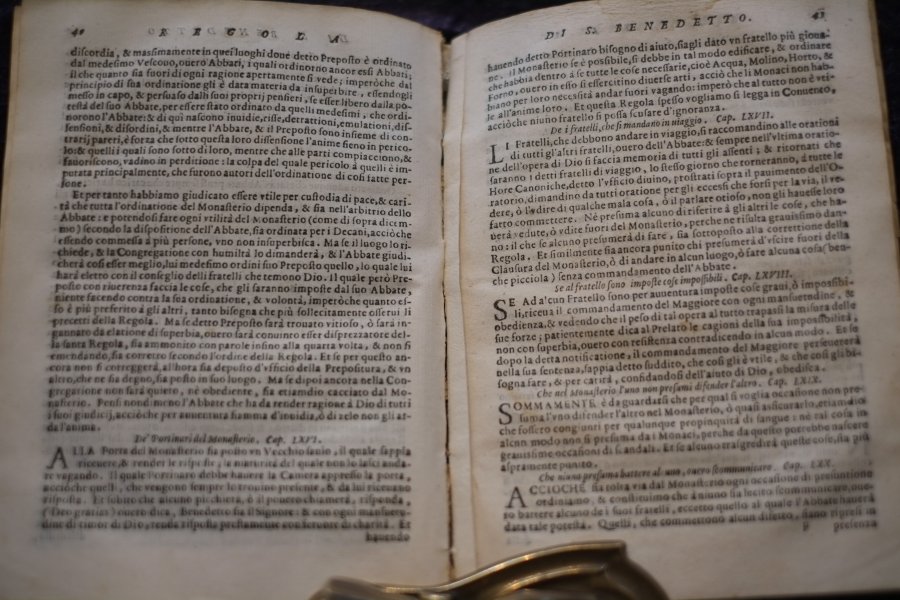 40 REGOLA
discordia, & massimamente in quei luoghi doue detto Preposto è ordinato
dal medesimo Vescouo, ouero Abbati, i quali ordinorno ancor essi Abbati;
il che quanto sia fuori di ogni ragione apertamente si vede; imperòche dal
principio di sua ordinatione gli è data materia da insuperbire, essendogli
messo in capo, & persuaso dalli suoi propri pensieri, se esser libero dalla po-
testà del suo Abbate, per essere stato ordinato da quelli medesimi, che ordi-
norono l'Abbate: & di quì nascono inuidie, risse, detrattioni, emulationi, dis-
sensioni, & disordini, & mentre l'Abbate, & il Preposto sono insieme di con-
trarij pareri, è forza che sotto questa loro dissensione l'anime sieno in perico-
lo: & quelli i quali sono sotto di loro, mentre che alle parti compiacciono, &
fauoriscono, vadino in perditione: la colpa del quale pericolo à quelli è im-
putata principalmente, che furono autori dell'ordinatione di così fatte per-
sone.
Et per tanto habbiamo giudicato essere vtile per custodia di pace, & cari-
tà che tutta l'ordinatione del Monasterio dipenda, & sia nell'arbitrio dello
Abbate: e potendosi fare ogni vtilità del Monasterio (come di sopra dicem-
mo) secondo la dispositione dell'Abbate, sia ordinata per i Decani, acciò che
essendo commessa à più persone, vno non insuperbisca. Ma se il luogo lo ri-
chiede, & la Congregatione con humiltà lo dimanderà, & l'Abbate giudi-
cherà così esser meglio, lui medesimo ordini suo Preposto quello, lo quale lui
harà eletto con il conseglio delli fratelli che temono Dio. Il quale però Pre-
posto con riuerenza faccia le cose, che gli saranno imposte dal suo Abbate,
niente facendo contra la sua ordinatione, & volontà, imperòche quanto es-
so è più preferito à gli altri, tanto bisogna che più sollecitamente osserui li
precetti della Regola. Ma se detto Preposto sarà trouato vitioso, ò sarà in-
gannato da elatione di superbia, ouero sarà conuinto esser disprezzatore del-
la santa Regola, sia ammonito con parole infino alla quarta volta, & non si
emendando, sia corretto secondo l'ordine della Regola. Et se per questo an-
cora non si correggerà, all'hora sia deposto d'vfficio della Prepositura, & vn
altro, che ne sia degno, sia posto in suo luogo. Ma se dipoi ancora nella Con-
gregatione non sarà quieto, nè obediente, sia etiamdio cacciato dal Mo-
nasterio. Pensi nondimeno l'Abbate che ha da render ragione à Dio di tutti
i suoi giudicij, acciòche per auuentura fiamma d'inuidia, ò di zelo non gli ar-
da l'anima.
De' Portinari del Monasterio. Cap. LXVI.
ALLA Porta del Monasterio sia posto vn Vecchio sauio, il quale sappia
riceuere, & rendere le risposte, la maturità del quale non lo lasci anda-
re vagando. Il quale Portinaro debbe hauere la Camera appresso la porta,
acciòche quelli, che vengono sempre lo trouino presente, & da lui riceuano
risposta. Et subito che alcuno picchierà, ò il pouero chiamerà, risponda,
(Deo gratias) ouero dica, Benedetto sia il Signore: & con ogni mansuetu-
dine di timor di Dio, renda risposta prestamente con feruore di charità. Et
hauendo
DI S. BENEDETTO. 41
hauendo detto Portinaro bisogno di aiuto, siagli dato vn fratello più gioua-
ne. il Monasterio se è possibile, si debbe in tal modo edificare, & ordinare
che habbia dentro à se tutte le cose necessarie, cioè Acqua, Molino, Horto, &
Forno, ouero in esso si essercitino diuerse arti, acciò che li Monaci non hab-
biano per loro necessità andar fuori vagando: imperò che al tutto non è vti-
le all'anime loro. Et questa Regola spesso vogliamo si legga in Conuento,
acciòche niuno fratello si possa scusare d'ignoranza.
De i fratelli, che si mandano in viaggio. Cap. LXVII.
LI Fratelli, che debbono andare in viaggio, si raccomandino alle orationi
di tutti gl'altri fratelli, ouero dell'Abbate: & sempre nell'vltima oratio-
ne dell'opera di Dio si faccia memoria di tutti gli assenti; & ritornati che
saranno i detti fratelli di viaggio, lo stesso giorno che torneranno, à tutte le
Hore Canoniche, detto l'vfficio diuino, prostrati sopra il pauimento dell'O-
ratorio, dimandino da tutti oratione per gli eccessi che forsi per la via, il ve-
dere, ò l'vdire di qualche mala cosa, ò il parlare otioso, non gli hauesse loro
fatto commettere. Nè presuma alcuno di riferire à gli altri le cose, che ha-
nerà vedute, ò vdite fuori del Monasterio, perche ne risulta grauissimo dan-
no: il che se alcuno presumerà di fare, sia sottoposto alla correttione della
Regola. Et similmente sia ancora punito chi presumerà d'vscire fuori della
Clausura del Monasterio, ò di andare in alcun luogo, ò fare alcuna cosa (ben-
che picciola) senza commandamento dell'Abbate.
Se al fratello sono imposte cose impossibili. Cap. LXVIII.
SE Ad alcun Fratello sono per auuentura imposte cose graui, ò impossibi-
li, riceua il commandamento del Maggiore con ogni mansuetudine, &
obedienza, & vedendo che il peso di tal opera al tutto trapassi la misura delle
sue forze; patientemente dica al Prelato le cagioni della sua impossibilità,
non con superbia, ouero con resistenza contradicendo in alcun modo. Et se
dopo la detta notificatione, il commandamento del Maggiore persevererà
nella sua sentenza, sappia detto suddito, che così gli è vtile, & che così gli bi-
sogna fare, & per carità, confidandosi dell'aiuto di Dio, obedisca.
Che nel Monasterio l'uno non presumi difender l'altro. Cap. LXIX.
SOMMAMENTE è da guardarsi che per qual si voglia occasione non pre-
suma l'vno difender l'altro nel Monasterio, ò quasi assicurarlo, etiamdio
che fossero congiunti per qualunque propinquità di sangue: nè tal cosa in
alcun modo non si presuma da i Monaci, perche da questo potrebbono nascere
grauissime occasioni di scandali. Et se alcuno trasgredirà queste cose, sia più
aspramente punito.
Che niuno presuma battere alcuno, ouero scommunicare. Cap. LXX.
ACCIOCHE sia tolta via dal Monasterio ogni occasione di presuntione
ordiniamo, & constituimo che à niuno sia lecito scommunicare, oue-
ro battere alcuno de i suoi fratelli, eccetto quello al quale l'Abbate hauerà
data tale potestà. Quelli, che commettono alcun difetto, siano ripresi in
presenza